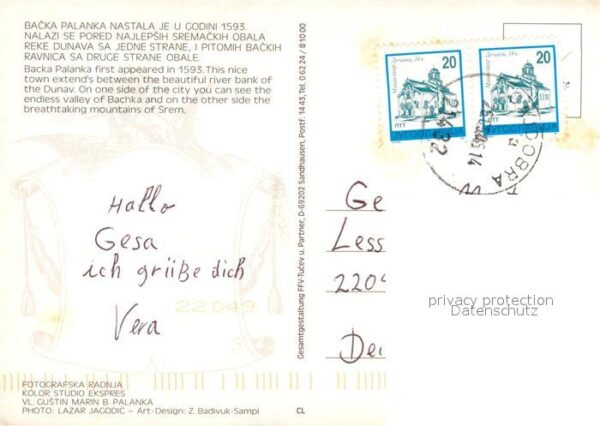 BAČKA PALANKA NASTALA JE U GODINI 1593.
NALAZI SE PORED NAJLEPŠIH SREMAČKIH OBALA
REKE DUNAVA SA JEDNE STRANE, I PITOMIH BAČKIH
RAVNICA SA DRUGE STRANE OBALE.
Backa Palanka first appeared in 1593. This nice
town extend's between the beautiful river bank of
the Dunav. On one side of the city you can see the
endless valley of Bachka and on the other side the
breathtaking mountains of Srem.
Hallo
Gesa
ich grüße dich
22049
Vera
FOTOGRAFSKA RADNJA
KOLOR STUDIO EKSPRES
VL. GUŠTIN MARIN B. PALANKA
PHOTO: LAZAR JAGODIĆ – Art-Design: Z. Badivuk-Sampi
CL
Gesamtgestaltung FFV-Tučev u. Partner, D-69202 Sandhausen, Postf. 1443, Tel. 06224/81000
Манастир Дечани, 14в.
20
ПТТ
ЈУГОСЛАВИЈА
Манастир Дечани, 14в.
20
ПТТ
ЈУГОСЛАВИЈА
Ge
Less
220
De
privacy protection
Datenschutz